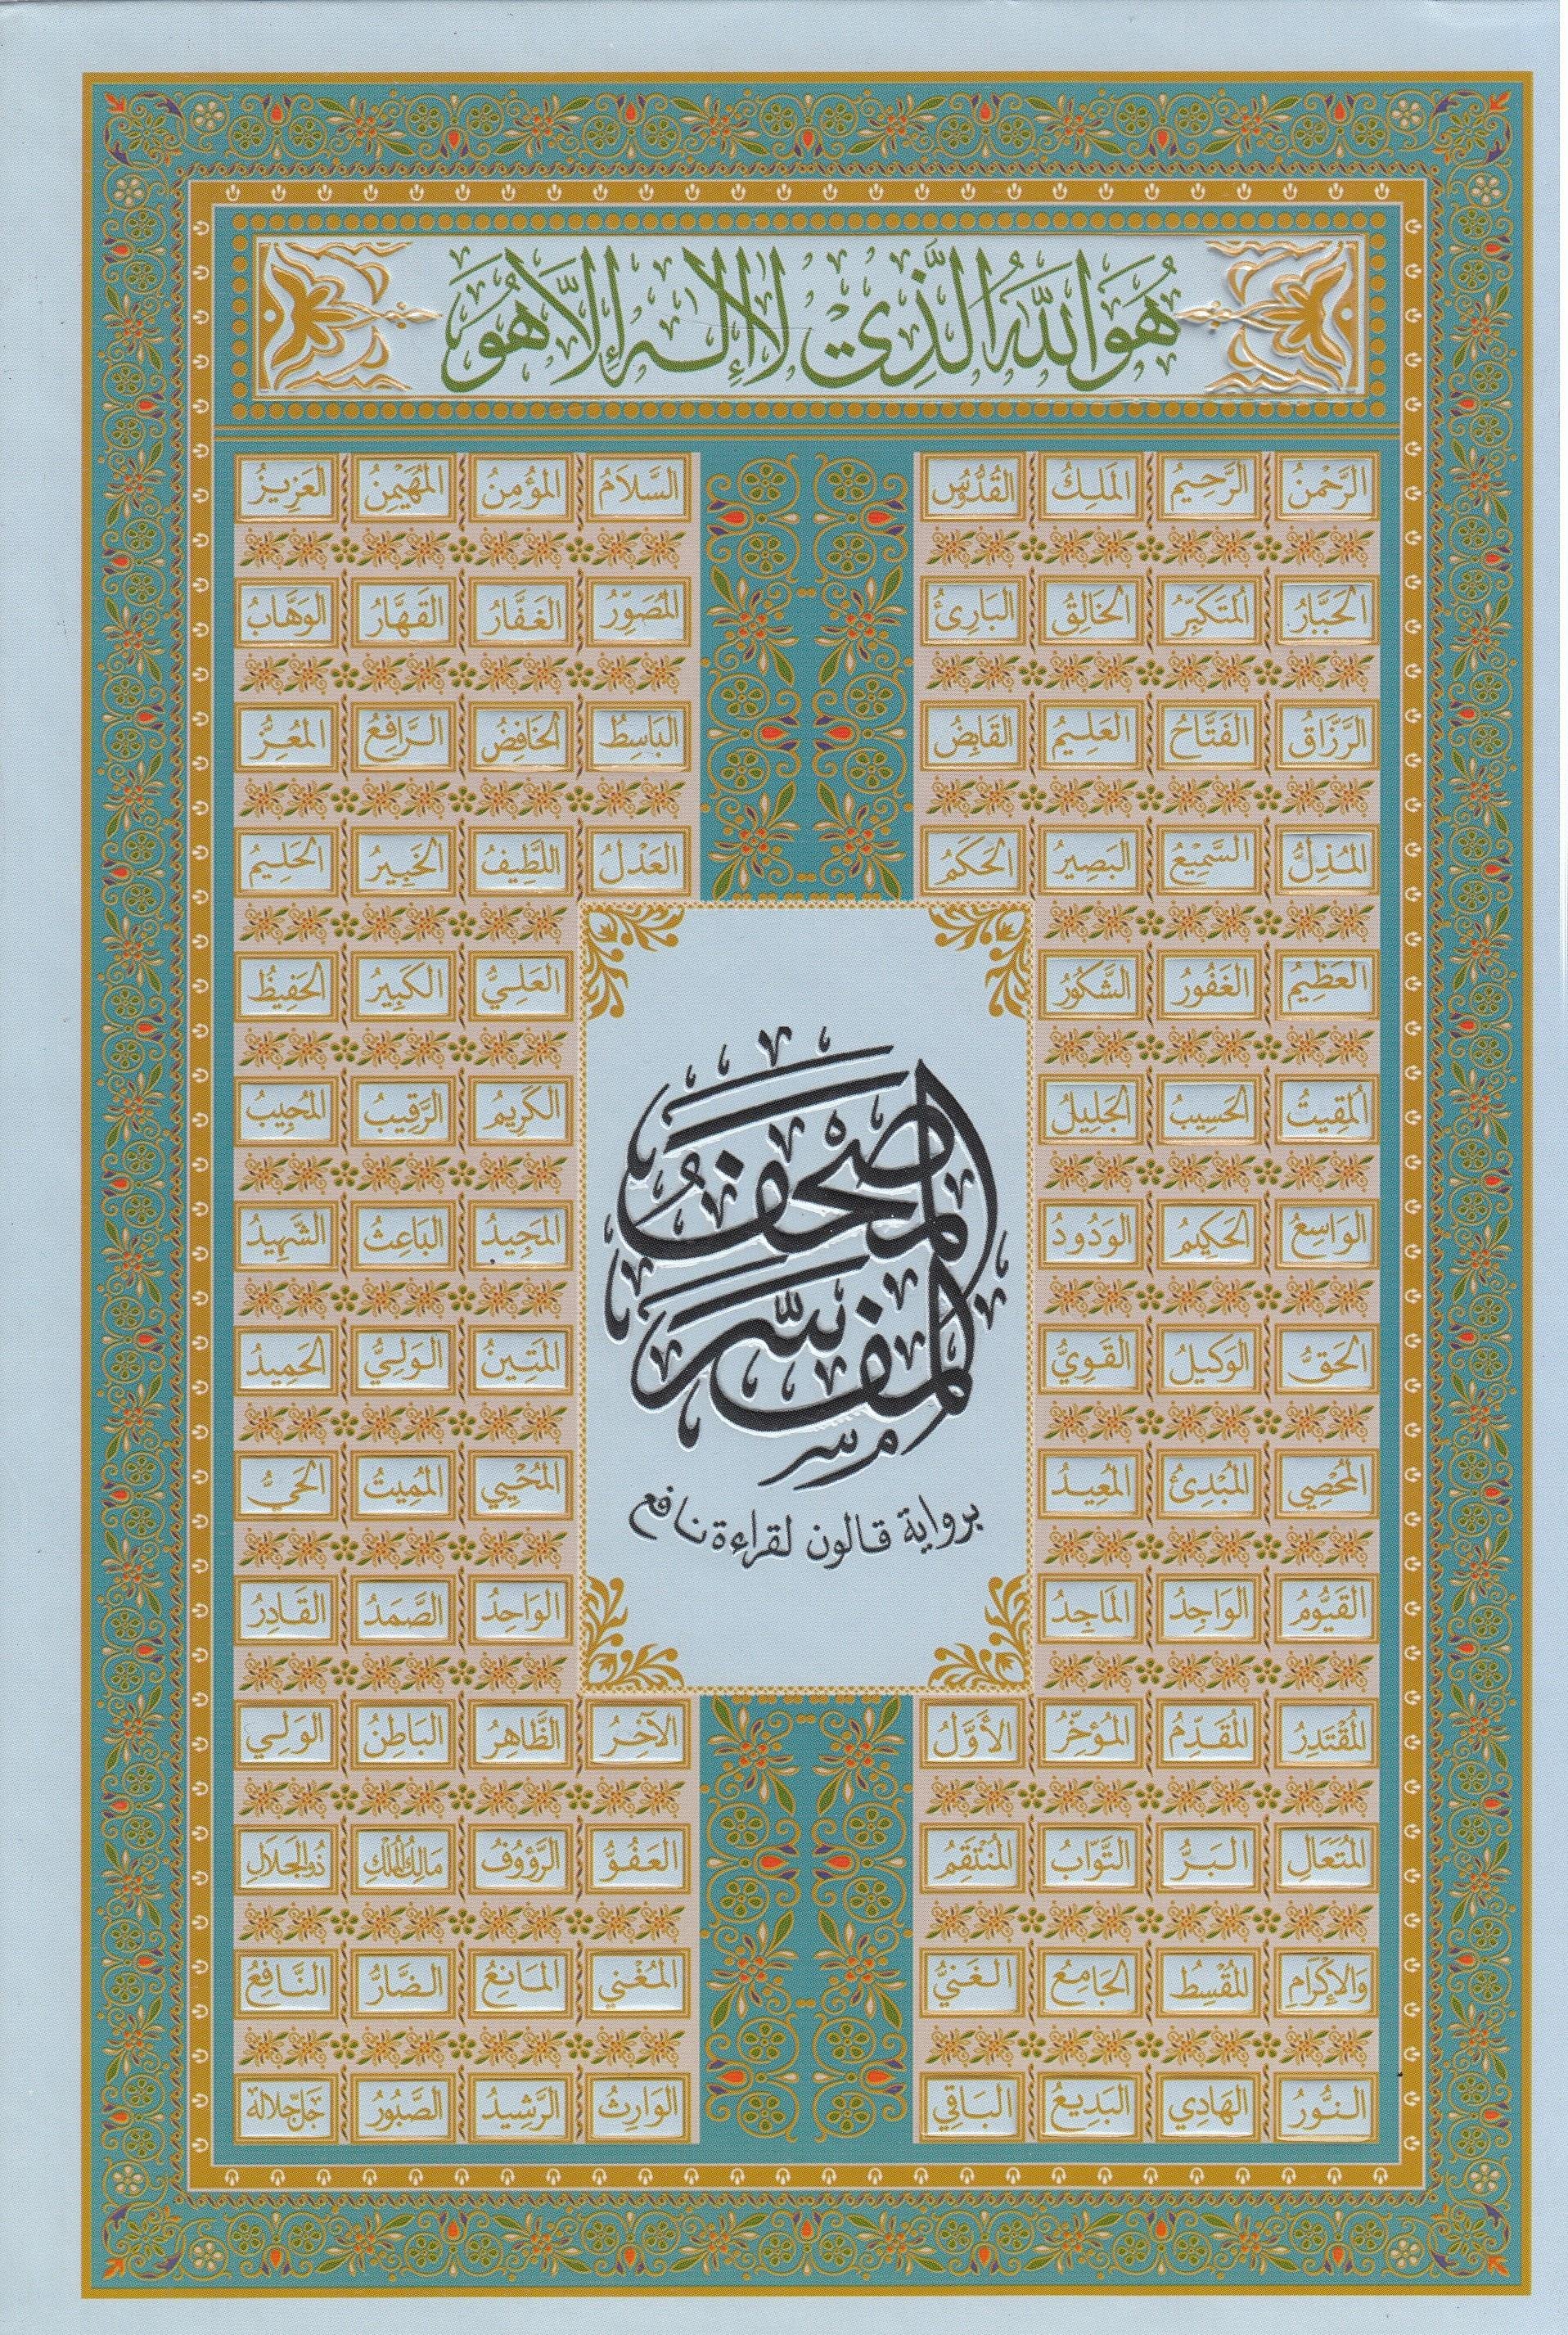 هُوَ اللَّهُ الَّذِي لَا إِلٰهَ إِلَّا هُوَ
الرَّحْمنُ الرَّحِيمُ المَلِكُ القُدُّوسُ السَّلاَمُ المُؤمِنُ المُهَيْمِنُ العَزِيزُ
الجَبَّارُ المُتَكَبِّرُ الخَالِقُ البَارِئُ المُصَوِّرُ الغَفَّارُ القَهَّارُ الوَهَّابُ
الرَّزَّاقُ الفَتَّاحُ العَلِيمُ القَابِضُ البَاسِطُ الخَافِضُ الرَّافِعُ المُعِزُّ
المُذِلُّ السَّمِيْعُ البَصِيرُ الحَكَمُ العَدْلُ اللَّطِيفُ الخَبِيرُ الحَلِيمُ
العَظِيمُ الغَفُورُ الشَّكُورُ العَلِيُّ الكَبِيرُ الحَفِيظُ
المُقِيتُ الحَسِيبُ الجَلِيلُ الكَرِيمُ الرَّقِيبُ المُجِيبُ
الوَاسِعُ الحَكِيمُ الوَدُودُ المَجِيدُ البَاعِثُ الشَّهِيدُ
الحَقُّ الوَكِيلُ القَوِيُّ المَتِينُ الوَلِيُّ الحَمِيدُ
المُحْصِي المُبْدِئُ المُعِيدُ المُحْيِي المُمِيتُ الحَيُّ
القَيُّومُ الوَاجِدُ المَاجِدُ الوَاحِدُ الصَّمَدُ القَادِرُ
المُقْتَدِرُ المُقَدِّمُ المُؤخِّرُ الأَوَّلُ الآخِرُ الظَّاهِرُ البَاطِنُ الوَلِي
المُتَعَالِ البَرُّ التَّوَّابُ المُنْتَقِمُ العَفُوُّ الرَّؤُوفُ مَالِكُ المُلْكِ ذُو الجَلاَلِ
وَالإِكْرَامِ المُقْسِطُ الجَامِعُ الغَنِيُّ المُغْنِي المَانِعُ الضَّارُّ النَّافِعُ
النُّورُ الهَادِي البَدِيعُ البَاقِي الوَارِثُ الرَّشِيدُ الصَّبُورُ جَلَّ جَلاله
المُصْحَفُ
المُفَسَّر
برواية قالون لقراءة نافع